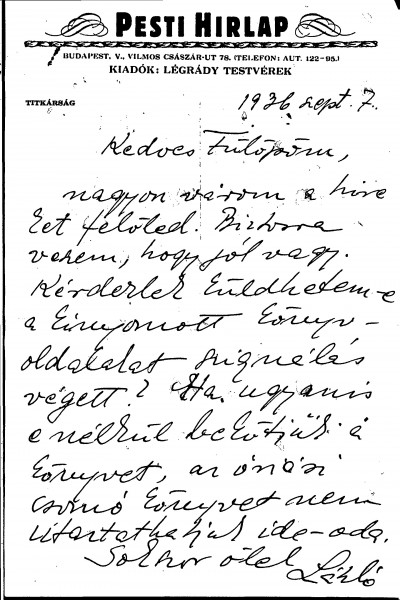 PESTI HIRLAP
BUDAPEST. V., VILMOS CSÁSZÁR-UT 78. (TELEFON: AUT. 122-95.)
KIADÓK: LÉGRÁDY TESTVÉREK
TITKÁRSÁG
1936 szept. 7.
Kedves Fülöpöm,
nagyon várom a hire
ket felőled. Biztosra
veszem, hogy jól vagy.
Kérdezlek küldhetem-e
a kinyomott könyv-
oldalakat szignálás
végett? Ha ugyanis
e nélkül bekötjük a
könyvet, az óriási
csomó könyvet nem
utaztathatjuk ide-oda.
Sokszor ölel
László